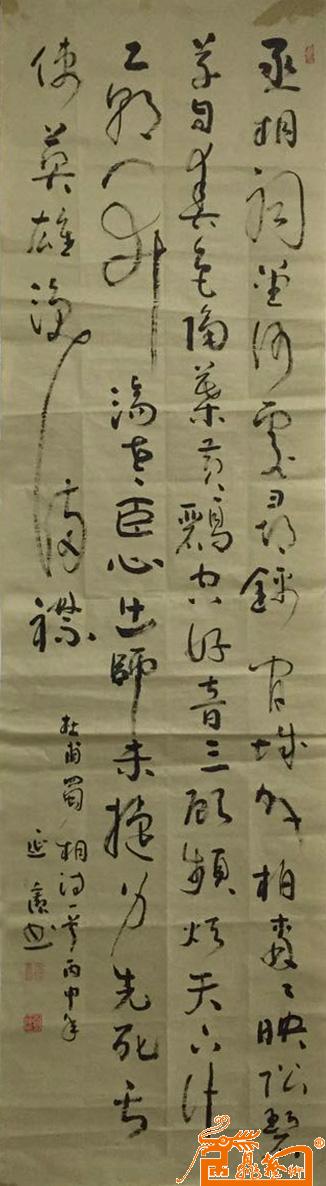 丞相祠堂何處尋錦官城外柏森々映階碧
草自春色隔葉黃鸝空好音三顧頻煩天下計
兩朝開濟老臣心出師未捷身先死長
使英雄淚滿襟
杜甫蜀相詩一首丙申年
延 書